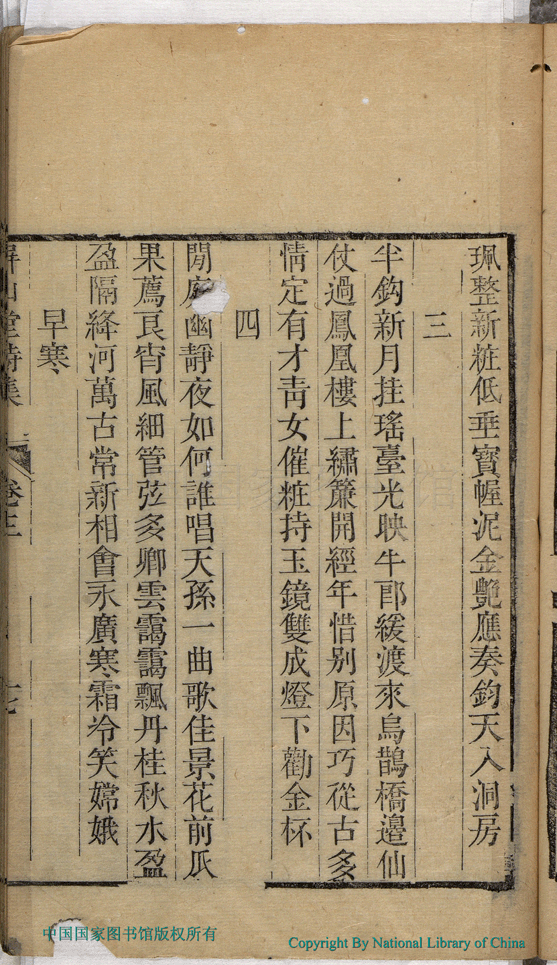 珮整新粧低垂寶幄泥金艷應奏鈞天入洞房
三
半鈎新月挂瑤臺光映牛郎緩渡來烏鵲橋邉仙
仗過鳳凰樓上繡簾開經年惜别原因巧從古多
情定有才靑女催粧持玉鏡雙成燈下勸金杯
四
閒庭幽靜夜如何誰唱天孫一曲歌佳景花前瓜
果薦良宵風細管弦多卿雲靄靄飄丹桂秋水盈
盈隔絳河萬古常新相會永廣寒霜冷笑嫦娥
早寒
屏山堂詩集 卷十三 十七
中国国家图书馆版权所有
Copyright By National Library of China